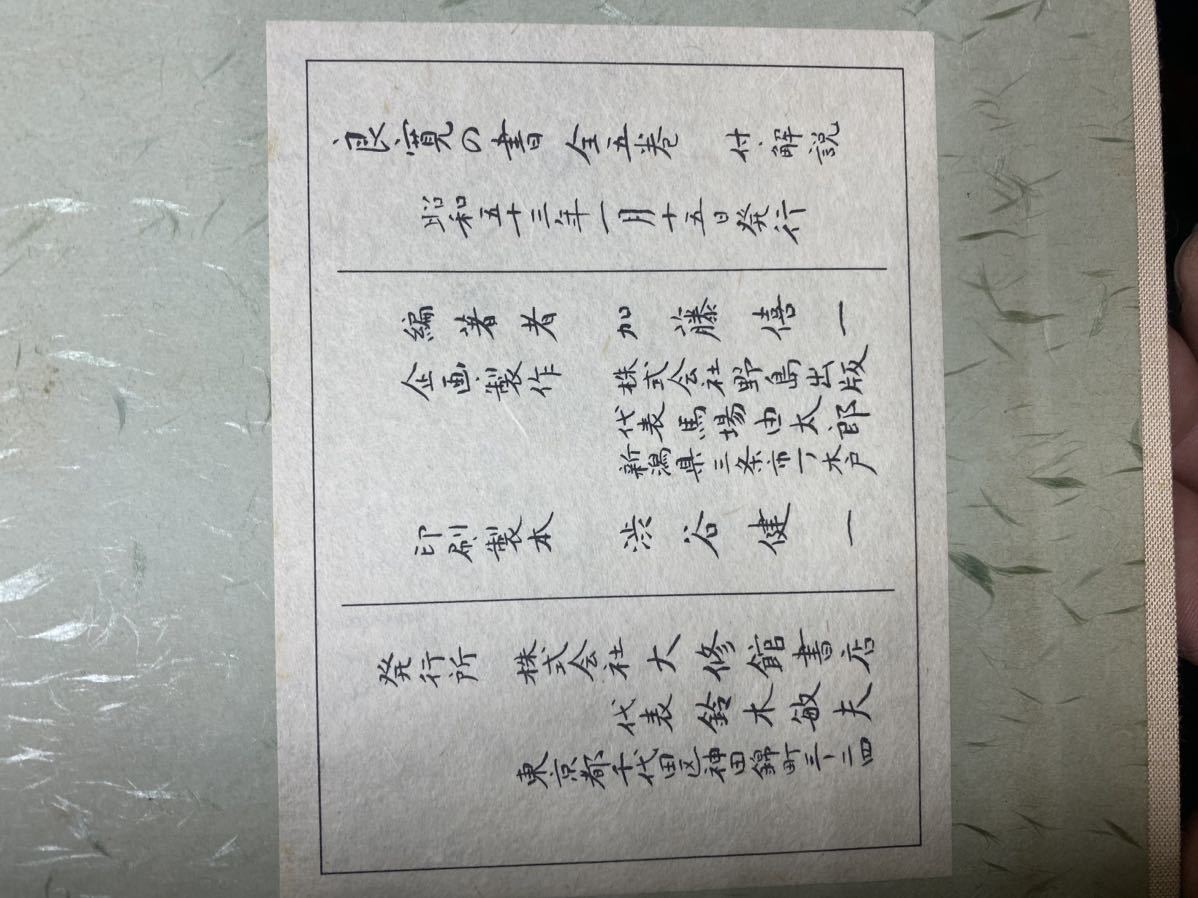 良寛の書 全五巻 付、解説
昭和五十三年一月十五日発行
編著者 加藤僖一
企画・製作 株式会社野島出版
代表馬場由太郎
新潟県三条市一ノ木戸
印刷製本 渋谷健一
発行所 株式会社大修館書店
代表鈴木敏夫
東京都千代田区神田錦町三ノ二四